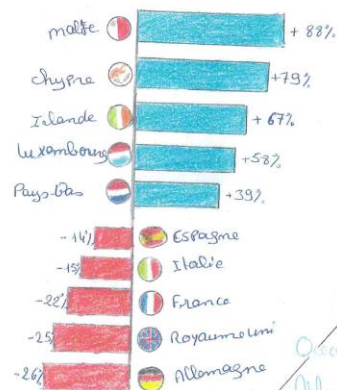 malte + 88%
chypre +79%
Irlande + 67%
Luxembourg +58%
Pays-Bas +39%
-14% Espagne
-15% Italie
-22% France
-25 Royaume uni
-26% Allemagne